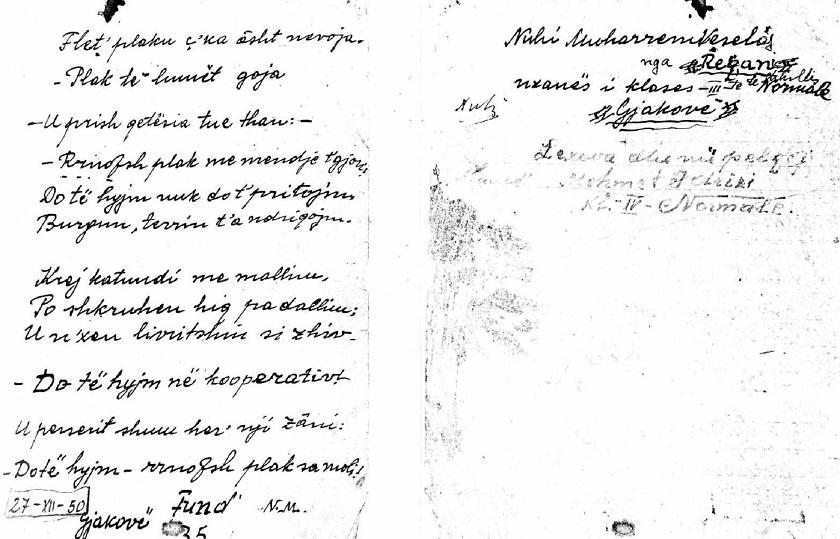 Flet' plaku ç'ka âsht nevoja.
- Plak të lumët goja
- U prish qetësia tue than: -
- Rrnofsh plak me mendje
Do të hyjm nuk do t' pritojm
Burgun, terrin t'a ndriçojm.
Krej katundi me mallin,
Po shkruhen hiq pa dallim;
U n'xen livritshin si zhiv-
- Do të hyjm në kooperativë
U perserit shum her' nji zâni:
- Do të hyjm - rrnofsh plak sa moti!
27-XII-50
Gjakovë
Fund
N.M.
35
Nuhi Muharrem Veselaj
nga Reban
nxanës i klases -III- të Normale
Gjakovë
Lexova dhe në
Mehmet Idrizi
Kl.-IV-Normale.